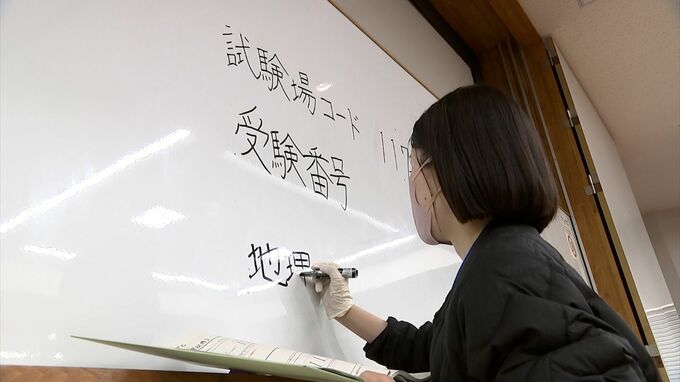 試験場コード 117
受験番号
地理